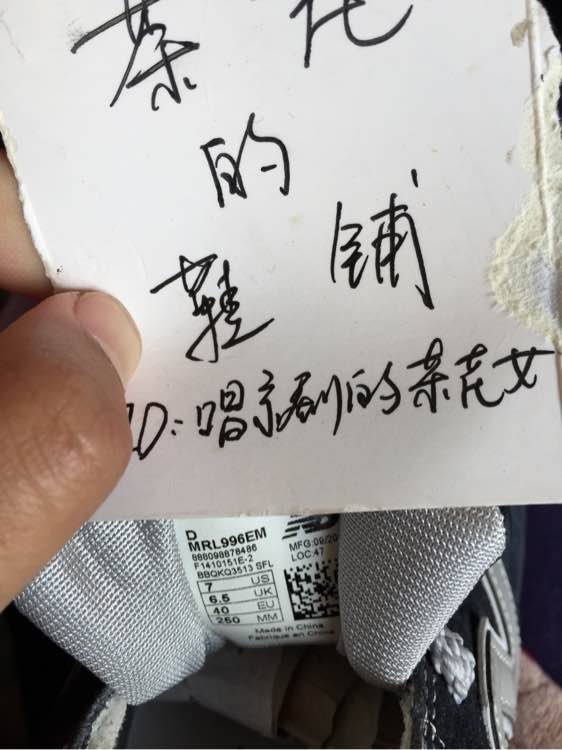 茶花
的
鞋铺
ID:唱京剧的茶花女
D
MRL996EM
888098878486
F1410151E-2
BBQKQ3513 SFL
MFG:09/20
LOC:47
7 US
6.5 UK
40 EU
250 MM
Made in China
Fabriqué en Chine